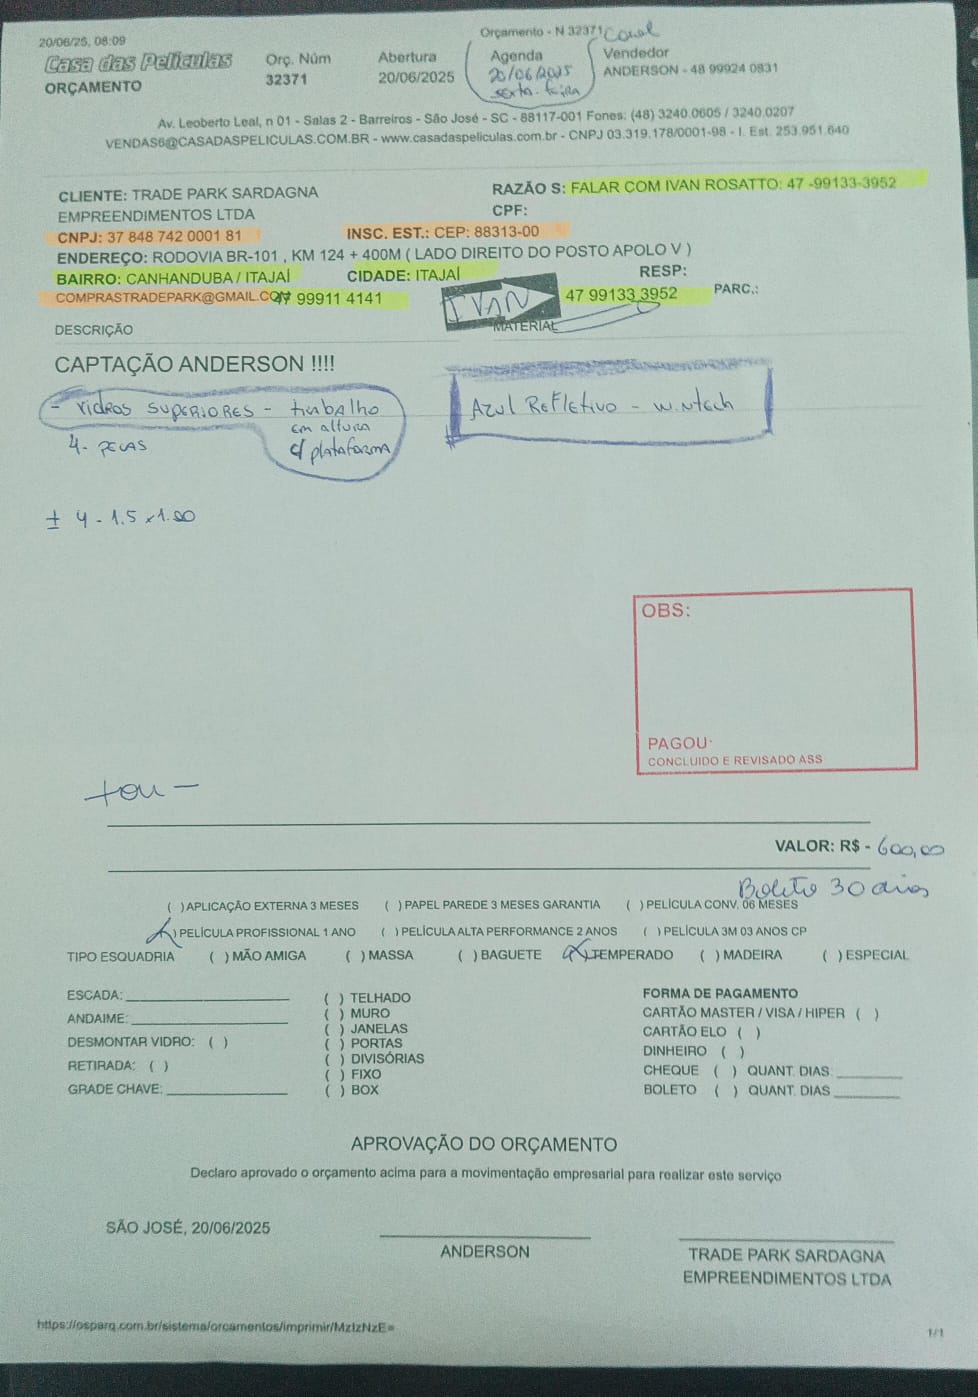 20/06/25, 08:09
Orçamento - N 32371
Casa das Películas
ORÇAMENTO
Orç. Núm
32371
Abertura
20/06/2025
Agenda
20/06/2025
sexta-feira
Vendedor
ANDERSON - 48 99924 0831
Av. Leoberto Leal, n 01 - Salas 2 - Barreiros - São José - SC - 88117-001 Fones: (48) 3240.0605 / 3240.0207
VENDAS6@CASADASPELICULAS.COM.BR - www.casadaspeliculas.com.br - CNPJ 03.319.178/0001-98 - I. Est. 253.951.640
CLIENTE: TRADE PARK SARDAGNA
EMPREENDIMENTOS LTDA
RAZÃO S: FALAR COM IVAN ROSATTO: 47 -99133-3952
CPF:
CNPJ: 37 848 742 0001 81
INSC. EST.: CEP: 88313-00
ENDEREÇO: RODOVIA BR-101 , KM 124 + 400M ( LADO DIREITO DO POSTO APOLO V )
BAIRRO: CANHANDUBA / ITAJAÍ
CIDADE: ITAJAÍ
RESP:
COMPRASTRADEPARK@GMAIL.COM
47 99911 4141
IVAN
47 99133 3952
PARC.:
DESCRIÇÃO
MATERIAL
CAPTAÇÃO ANDERSON !!!!
- vidros SUPERIORES - trabalho
em altura
c/ plataforma
4 - PEÇAS
Azul Refletivo - wintech
± 4 - 1.5 x 1.00
OBS:
PAGOU:
CONCLUIDO E REVISADO ASS
VALOR: R$ - 600,00
Boleto 30 dias
( )APLICAÇÃO EXTERNA 3 MESES ( )PAPEL PAREDE 3 MESES GARANTIA ( )PELÍCULA CONV. 06 MESES
(X)PELÍCULA PROFISSIONAL 1 ANO ( )PELÍCULA ALTA PERFORMANCE 2 ANOS ( )PELÍCULA 3M 03 ANOS CP
TIPO ESQUADRIA ( ) MÃO AMIGA ( ) MASSA ( ) BAGUETE (X)TEMPERADO ( ) MADEIRA ( ) ESPECIAL
ESCADA: ____________
ANDAIME: ____________
DESMONTAR VIDRO: ( )
RETIRADA: ( )
GRADE CHAVE: ____________
( ) TELHADO
( ) MURO
( ) JANELAS
( ) PORTAS
( ) DIVISÓRIAS
( ) FIXO
( ) BOX
FORMA DE PAGAMENTO
CARTÃO MASTER / VISA / HIPER ( )
CARTÃO ELO ( )
DINHEIRO ( )
CHEQUE ( ) QUANT. DIAS ________
BOLETO ( ) QUANT. DIAS ________
APROVAÇÃO DO ORÇAMENTO
Declaro aprovado o orçamento acima para a movimentação empresarial para realizar este serviço
SÃO JOSÉ, 20/06/2025
ANDERSON
TRADE PARK SARDAGNA
EMPREENDIMENTOS LTDA
https://osparq.com.br/sistema/orcamentos/imprimir/MzIzNzE=
1/1